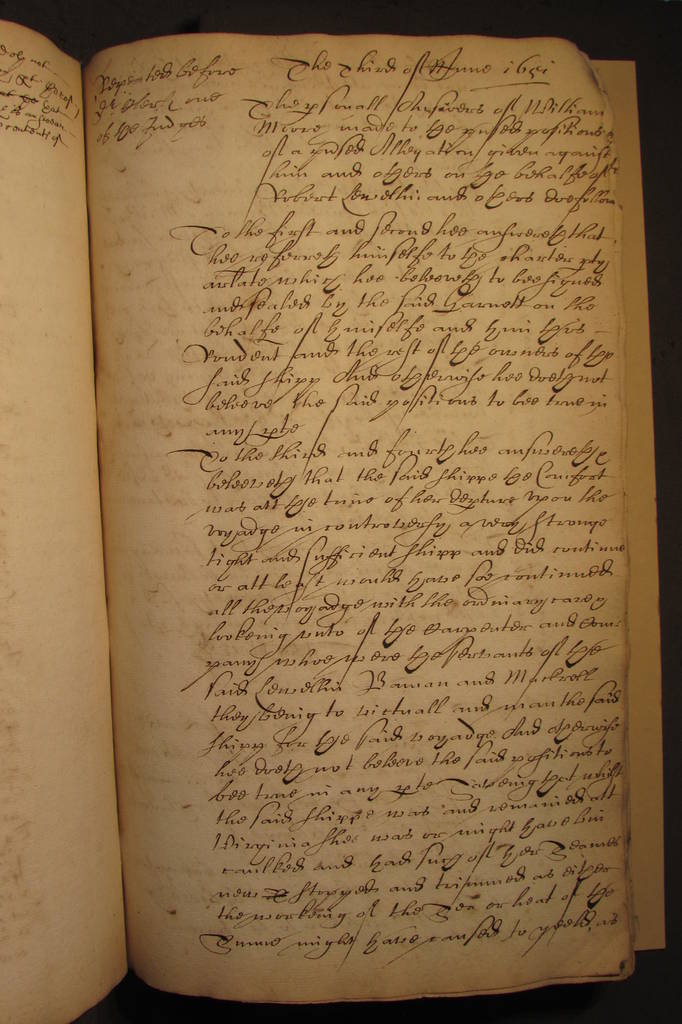 The Third of June 1651
Repeated before
one
of the Judges
The psonall Answers of William
Moore made to the pnsed positions
of a pnsed Allegation given against
him and others on the behalfe of
Robert Lewellin and others doe follow
To the first and second hee answereth that
hee referreth himselfe to the charter pty
arlate which hee beleeveth to bee signed
and sealed by the said Garnett on the
behalfe of himselfe and him this
rondent and the rest of the owners of the
said shipp And otherwise hee doeth not
beleeve the said positions to bee true in
any pte
To the third and fourth hee answereth &
beleeveth that the said shippe the Comfort
was att the time of her depture upon the
voyadge in controversy a very stronge
tight and sufficient shipp and did continue
or att least would have soe continued
all the voyadge with the ordinary care &
lookeing unto of the Carpenter and Com-
pany whoe were the servants of the
said Lewellin Baman and Mackrell
they being to victuall and man the said
shipp for the said voyadge And otherwise
hee doeth not beleeve the said positions to
bee true in any pte Saveing that whilst
the said shippe was and remained att
Virginia shee was or might have bin
caulked and had such of her Seames
new stopped and trimmed as either
the workeing of the Sea or heat of the
Sunne might have caused to yeeld, as